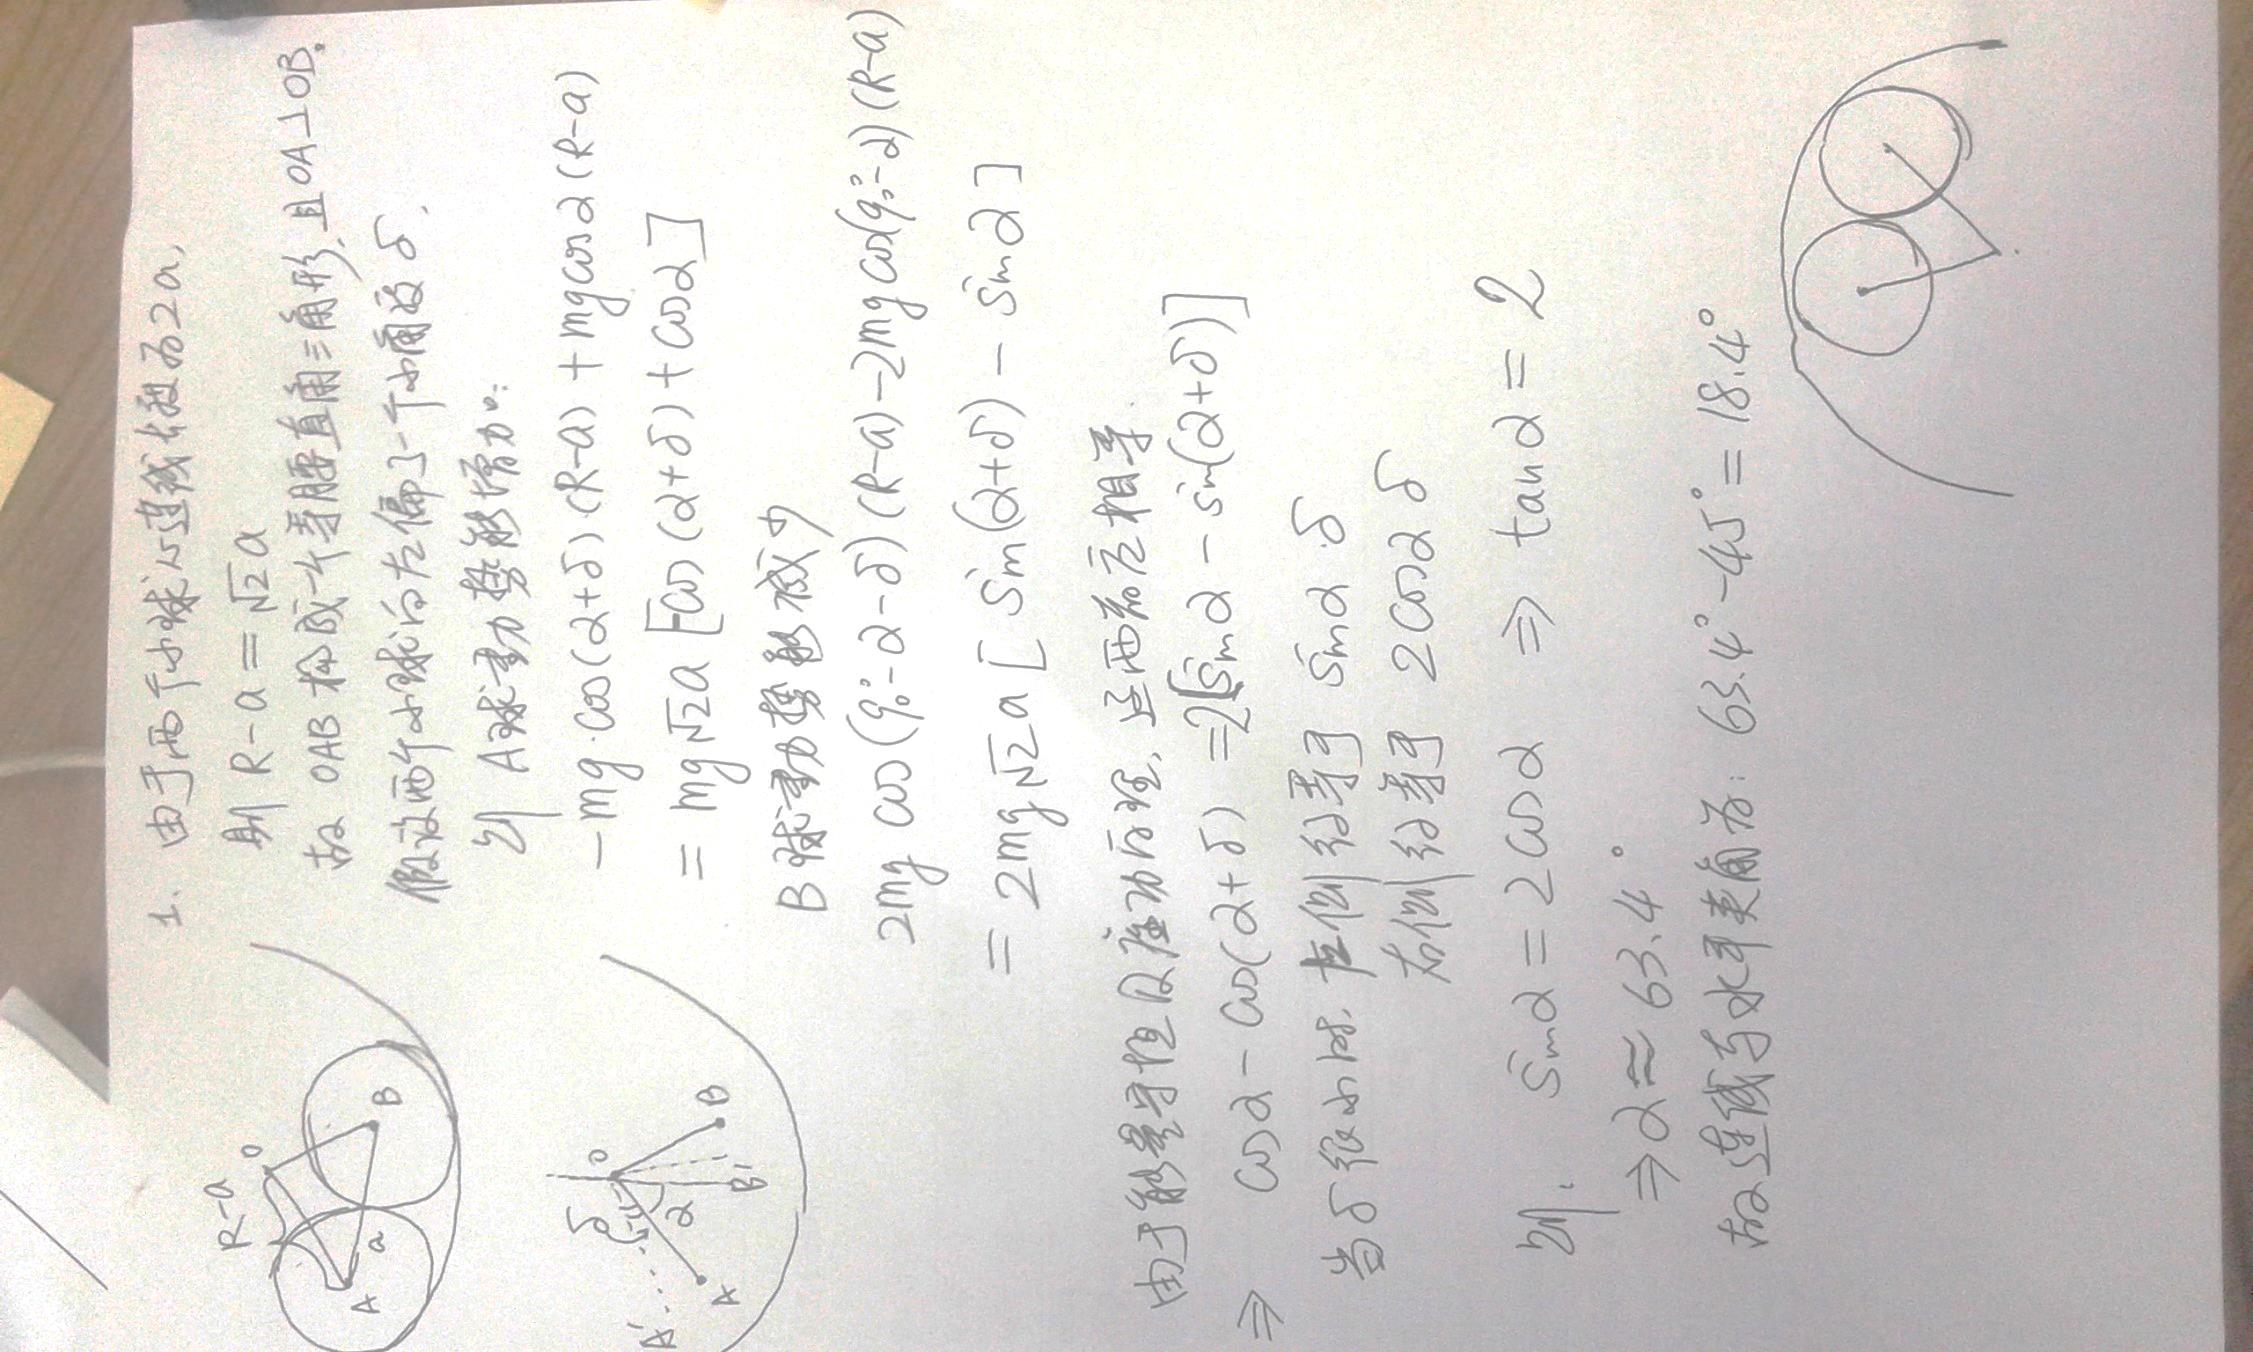 1. 由于两个小球心连线长权为2a,
则 R-a=√2a
故 OAB 构成一个等腰直角三角形,且OA⊥OB.
假设两个小球向左偏了一个小角度δ.
则 A球重力势能增加:
-mg·cos(α+δ)(R-a)+mgcosα(R-a)
=mg√2a[-cos(α+δ)+cosα]
B球重力势能减少
2mg cos(90°-α-δ)(R-a)-2mg cos(90°-α)(R-a)
=2mg√2a[sin(α+δ)-sinα]
由于能量守恒及虚功原理,且两者应相等.
⇒ cosα-cos(α+δ)=2[sinα-sin(α+δ)]
当δ很小时,左侧约等于 sinα·δ
右侧约等于 2cosα δ
则. sinα=2cosα ⇒ tanα=2
⇒α≈63.4°
故连线与水平夹角为: 63.4°-45°=18.4°
R-a
O
A
a
B
δ
O
A'
α
A
B'
B